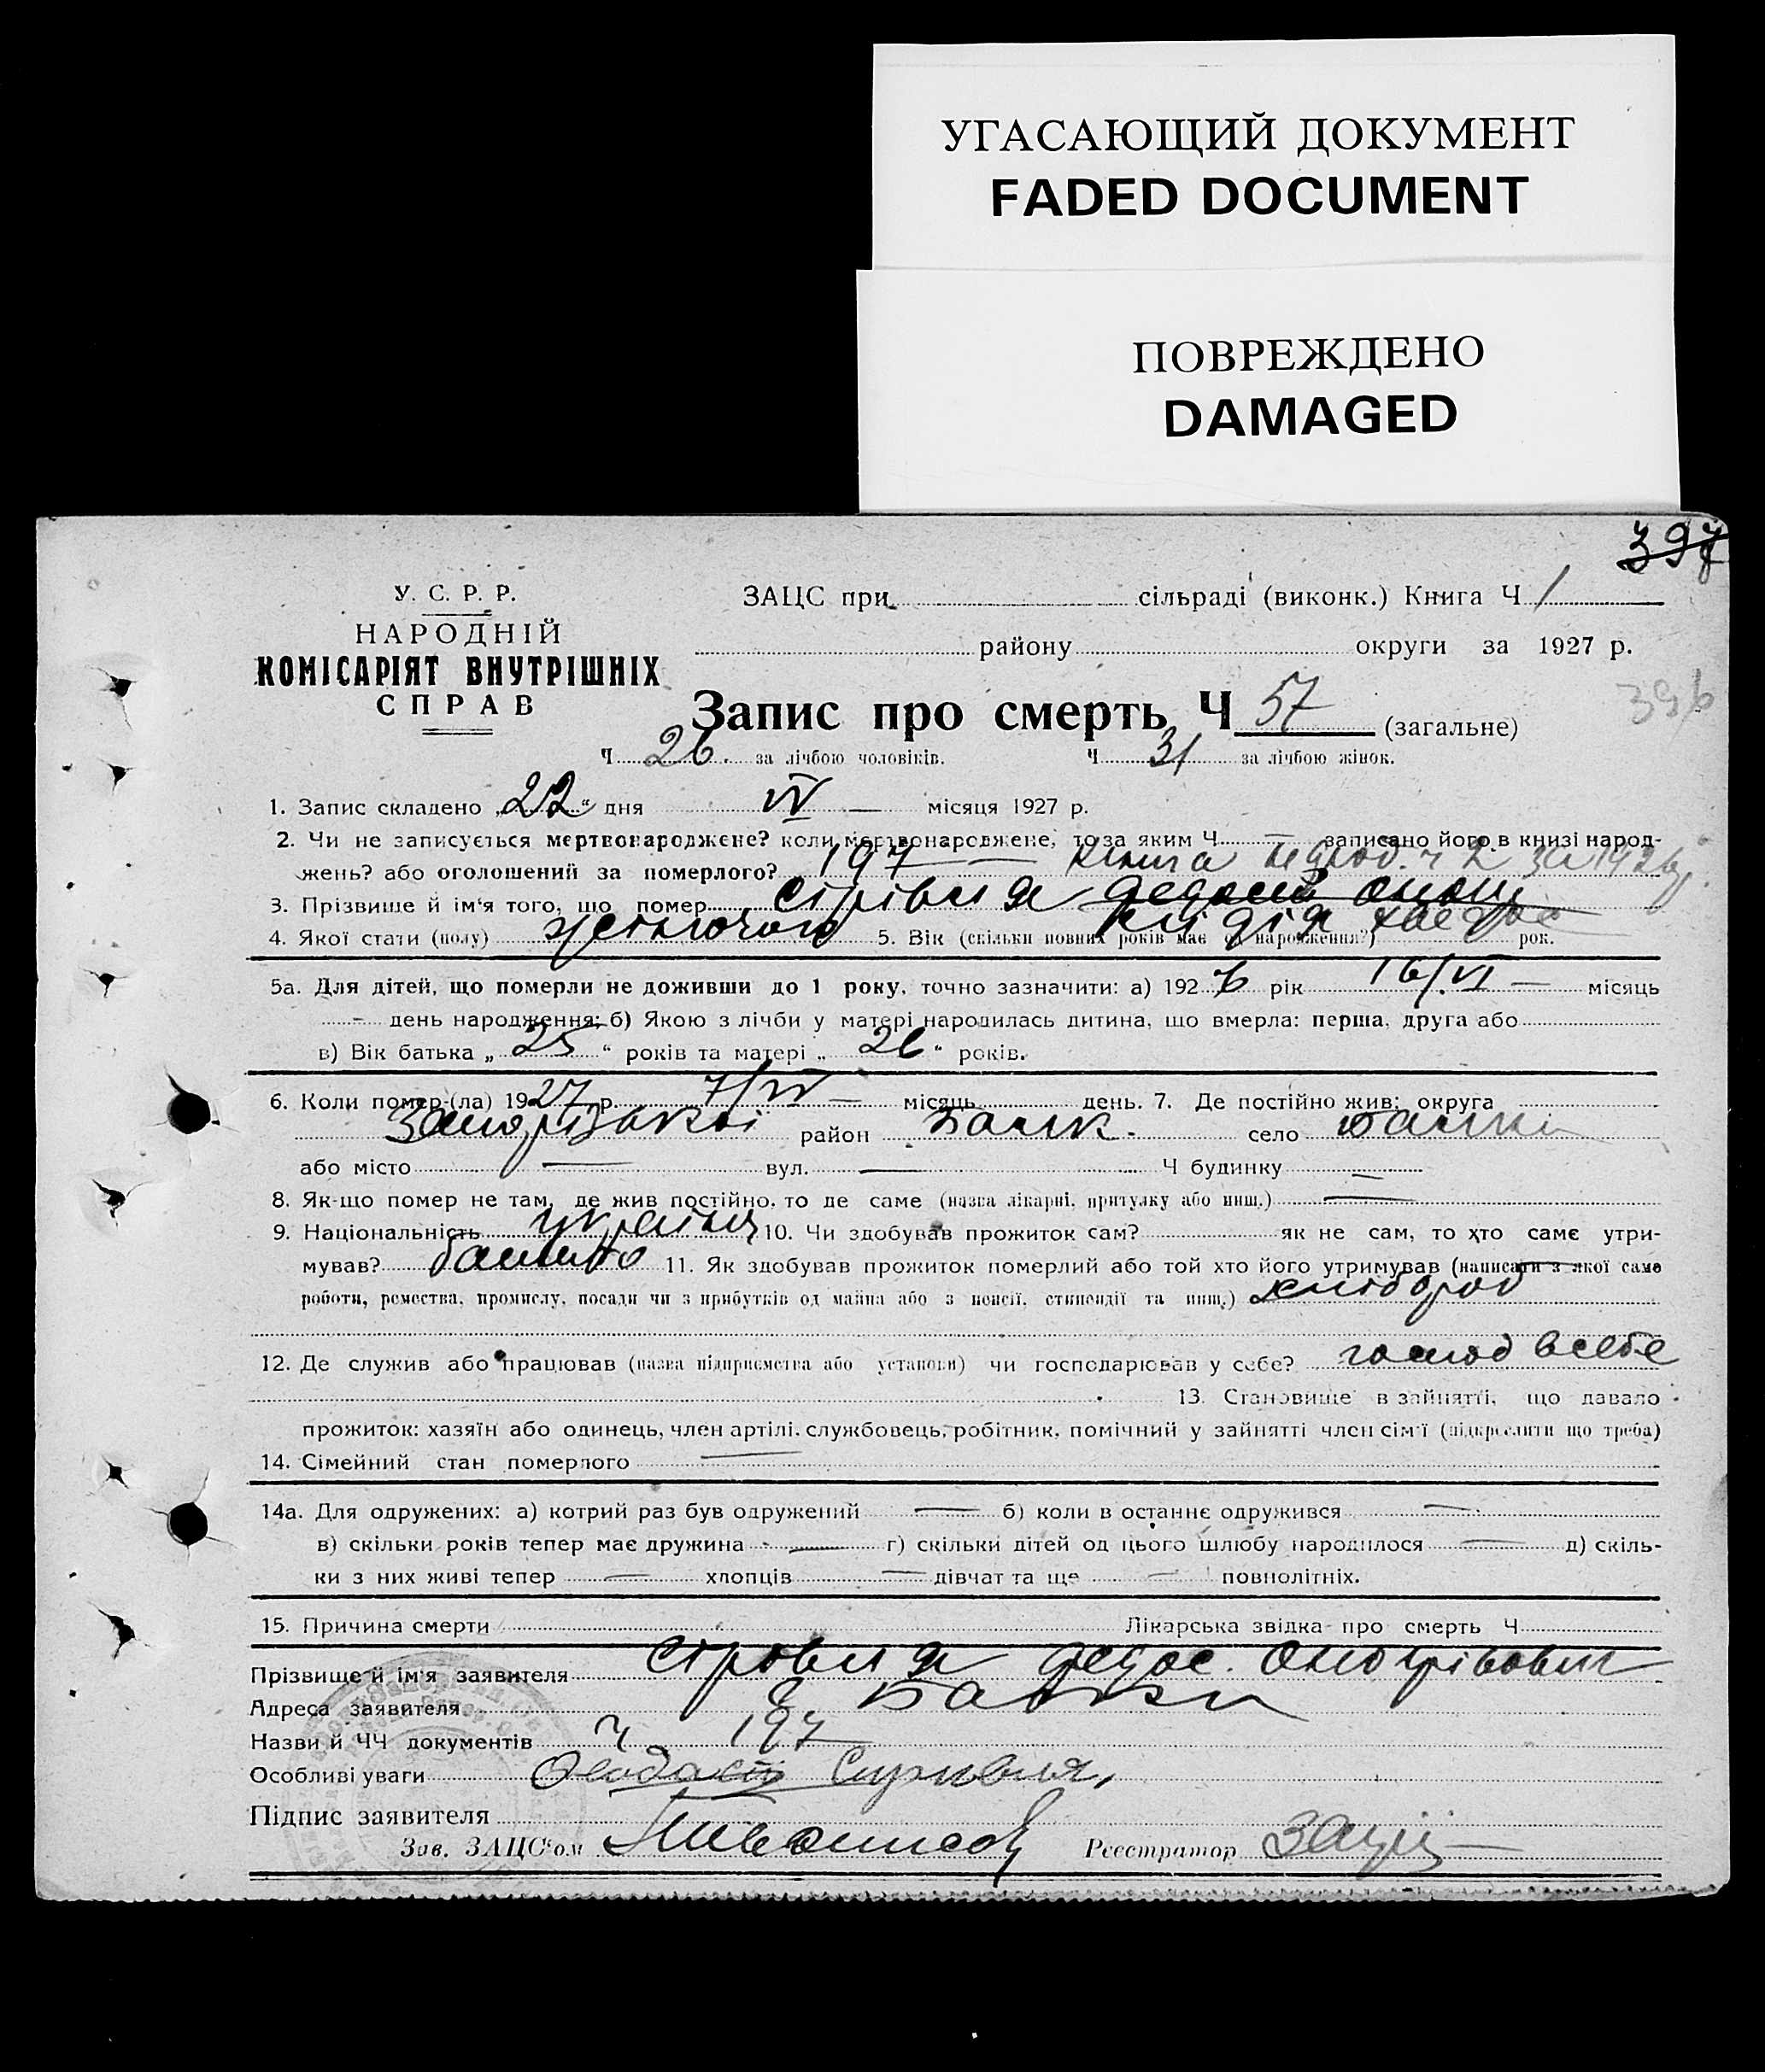 УГАСАЮЩИЙ ДОКУМЕНТ
FADED DOCUMENT
ПОВРЕЖДЕНО
DAMAGED
397
У. С. Р. Р.
НАРОДНІЙ
КОМІСАРІЯТ ВНУТРІШНІХ
СПРАВ
ЗАЦС при сільраді (виконк.) Книга Ч 1
району округи за 1927 р.
396
Запис про смерть Ч 57 (загальне)
Ч 26. за лічбою чоловіків. Ч 31 за лічбою жінок.
1. Запис складено „22“ дня IV — місяця 1927 р.
2. Чи не записується мертвонароджене? коли мертвонароджене, то за яким Ч — записано його в книзі народ-
жень? або оголошений за померлого? 197 — книга
3. Прізвище й ім‘я того, що помер
4. Якої статі (полу) жіночого 5. Вік (скільки повних років має од народження?) рок.
Лідія
5а. Для дітей, що померли не доживши до 1 року, точно зазначити: а) 1926 рік 16/VI — місяць
— день народження; б) Якою з лічби у матері народилась дитина, що вмерла: перша, друга або
в) Вік батька „25“ років та матері „26“ років.
6. Коли помер-(ла) 1927 р. 7/IV — місяць день. 7. Де постійно жив: округа
Запорізької район Балк. село Балки
або місто — вул. — Ч будинку —
8. Як-що помер не там, де жив постійно, то де саме (назва лікарні, притулку або инш.) —
9. Національність україн 10. Чи здобував прожиток сам? як не сам, то хто саме утри-
мував? батько 11. Як здобував прожиток померлий або той хто його утримував (написати з якої саме
роботи, ремества, промислу, посади чи з прибутків од майна або з пенсії, стипендії та инш.) хлібороб
12. Де служив або працював (назва підприємства або установи) чи господарював у себе? господ всебе
13. Становище в зайнятті, що давало
прожиток: хазяїн або одинець, член артілі, службовець, робітник, помічний у зайнятті член сім‘ї (підкреслити що треба)
14. Сімейний стан померлого —
14а. Для одружених: а) котрий раз був одружений — б) коли в останнє одружився —
в) скільки років тепер має дружина — г) скільки дітей од цього шлюбу народилося — д) скіль-
ки з них живі тепер — хлопців — дівчат та ще — повнолітніх.
15. Причина смерти Лікарська звідка про смерть Ч
Прізвище й ім‘я заявителя Федос.
Адреса заявителя с Балки
Назви й ЧЧ документів ч 197
Особливі уваги
Підпис заявителя
Зав. ЗАЦС‘ом Реєстратор